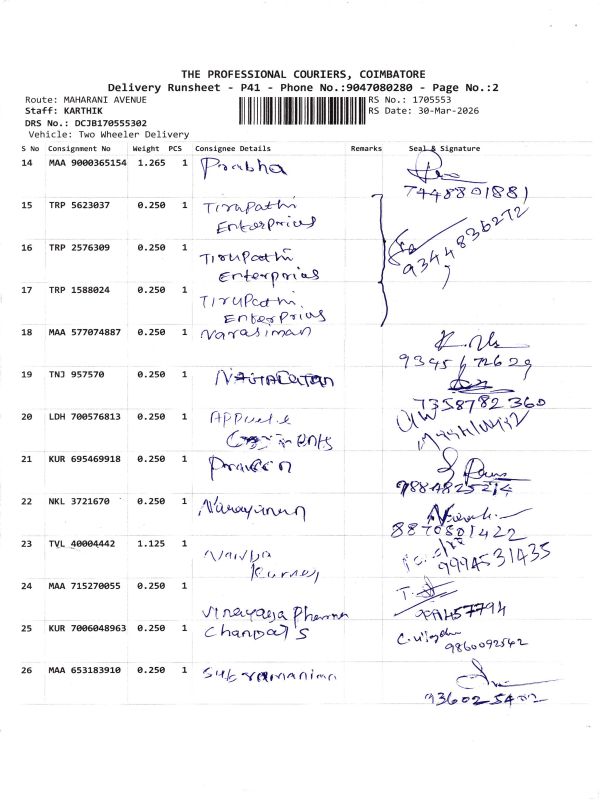 THE PROFESSIONAL COURIERS, COIMBATORE
Delivery Runsheet - P41 - Phone No.:9047080280 - Page No.:2
Route: MAHARANI AVENUE RS No.: 1705553
Staff: KARTHIK RS Date: 30-Mar-2026
DRS No.: DCJB170555302
Vehicle: Two Wheeler Delivery
S No Consignment No Weight PCS Consignee Details Remarks Seal & Signature
14 MAA 9000365154 1.265 1 Prabha
7448801881
15 TRP 5623037 0.250 1 Tirupathi
Enterprises
9344836272
16 TRP 2576309 0.250 1 Tirupathi
Enterprias
17 TRP 1588024 0.250 1 Tirupathi
Enterprias
18 MAA 577074887 0.250 1 Narasiman
9345672629
19 TNJ 957570 0.250 1
7358782360
20 LDH 700576813 0.250 1
21 KUR 695469918 0.250 1
9884825214
22 NKL 3721670 0.250 1 Narayanan
8870801422
23 TVL 40004442 1.125 1
9994531435
24 MAA 715270055 0.250 1
Vinayaga Pharma
25 KUR 7006048963 0.250 1
9860092542
26 MAA 653183910 0.250 1 Subramanian